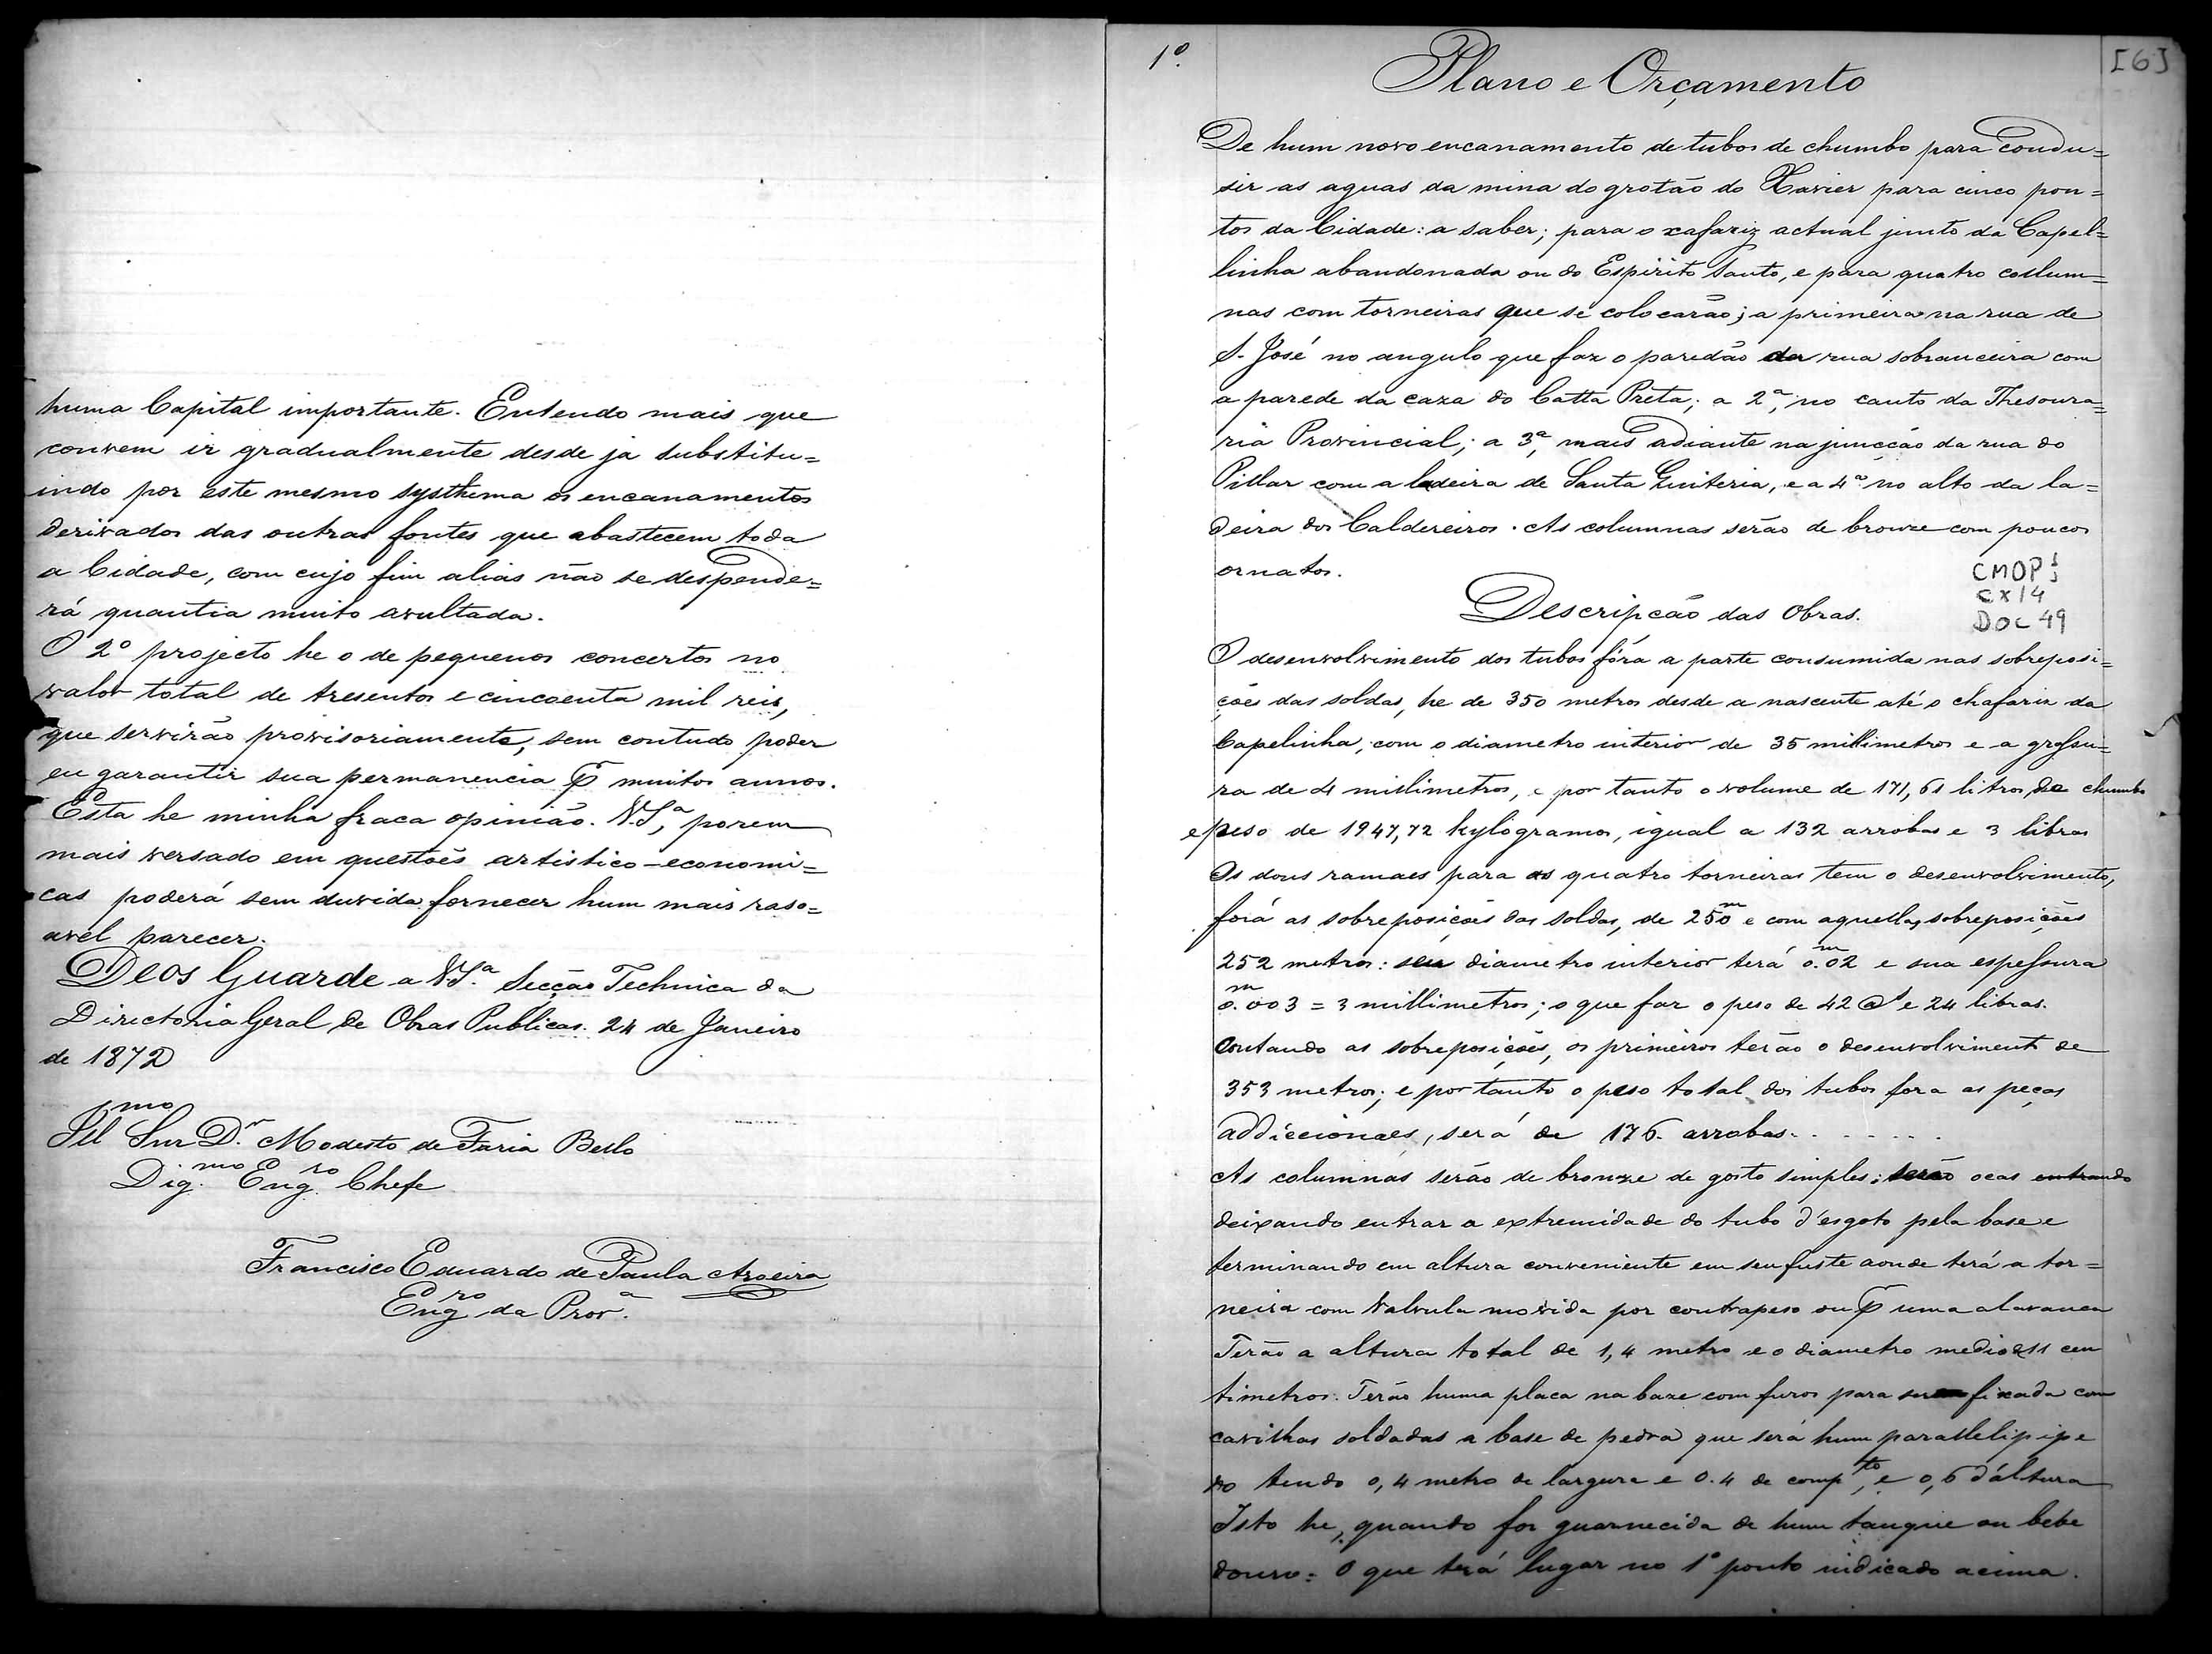 huma Capital importante. Entendo mais que
convem ir gradualmente desde ja substitu=
indo por este mesmo systhema os encanamentos
derivados das outras fontes que abastecem toda
a Cidade, com cujo fim aliás não se despende=
rá quantia muito avultada.
O 2º projecto he o de pequenos concertos no
valor total de tresentos e cincoenta mil reis,
que servirão provisoriamente, sem contudo poder
eu garantir sua permanencia p.r muitos annos.
Esta he minha fraca opinião. V.S.ª, porem
mais versado em questões artistico-economi=
cas poderá sem duvida fornecer hum mais raso=
avel parecer.
Deos Guarde a V.S.ª Secção Technica da
Directoria Geral de Obras Publicas. 24 de Janeiro
de 1872
Ill.mo Snr D.r Modesto de Faria Bello
Dig.mo Eng.ro Chefe
Francisco Eduardo de Paula Aroeira
Eng.ro da Prov.ª
1º.
[6]
Plano e Orçamento
De hum novo encanamento de tubos de chumbo para condu=
sir as aguas da mina do grotão do Xavier para cinco pon=
tos da Cidade: a saber; para o xafariz actual junto da Capel=
linha abandonada ou do Espirito Santo, e para quatro collum=
nas com torneiras que se colocarão; a primeira na rua de
S. José no angulo que faz o paredão da rua sobranceira com
a parede da caza do Catta Preta; a 2ª, no canto da Thesoura=
ria Provincial; a 3ª, mais adiante na juncção da rua do
Pillar com a ladeira de Santa Quiteria, e a 4ª no alto da la=
deira dos Caldereiros. As columnas serão de bronze com poucos
ornatos.
CMOP
cx 14
DOC 49
Descripção das Obras.
O desenvolvimento dos tubos fóra a parte consumida nas sobreposi=
ções das soldas, he de 350 metros desde a nascente até o chafariz da
Capelinha, com o diametro interior de 35 millimetros e a grossu=
ra de 4 millimetros, e por tanto o volume de 171,61 litros de chumbo
e peso de 1947,72 kylogramos, igual a 132 arrobas e 3 libras
Os dous ramaes para as quatro torneiras tem o desenvolvimento,
forá as sobreposições das soldas, de 250m e com aquellas sobreposições
252 metros: seu diametro interior terá 0.m02 e sua espessura
0.m003 = 3 millimetros; o que faz o peso de 42 @s e 24 libras.
Contando as sobreposições, os primeiros terão o desenvolvimento de
353 metros; e por tanto o peso total dos tubos fora as peças
addiccionaes, será de 176 arrobas. . . . . . .
As columnas serão de bronze de gosto simples; serão ocas entrando
deixando entrar a extremidade do tubo d'esgoto pela base e
terminando em altura conveniente em seu fuste aonde terá a tor=
neira com valvula movida por contrapeso ou p.r uma alavanca
Terão a altura total de 1,4 metro e o diametro medio 11 cen
timetros. Terão huma placa na baze com furos para ser fixada com
cavilhas soldadas a base de pedra que será hum parallelipipe
do tendo 0,4 metro de largura e 0.4 de comp.to, e 0,6 d'áltura
Isto he, quando for guarnecida de hum tanque ou bebe
douro: O que terá lugar no 1º ponto indicado acima.